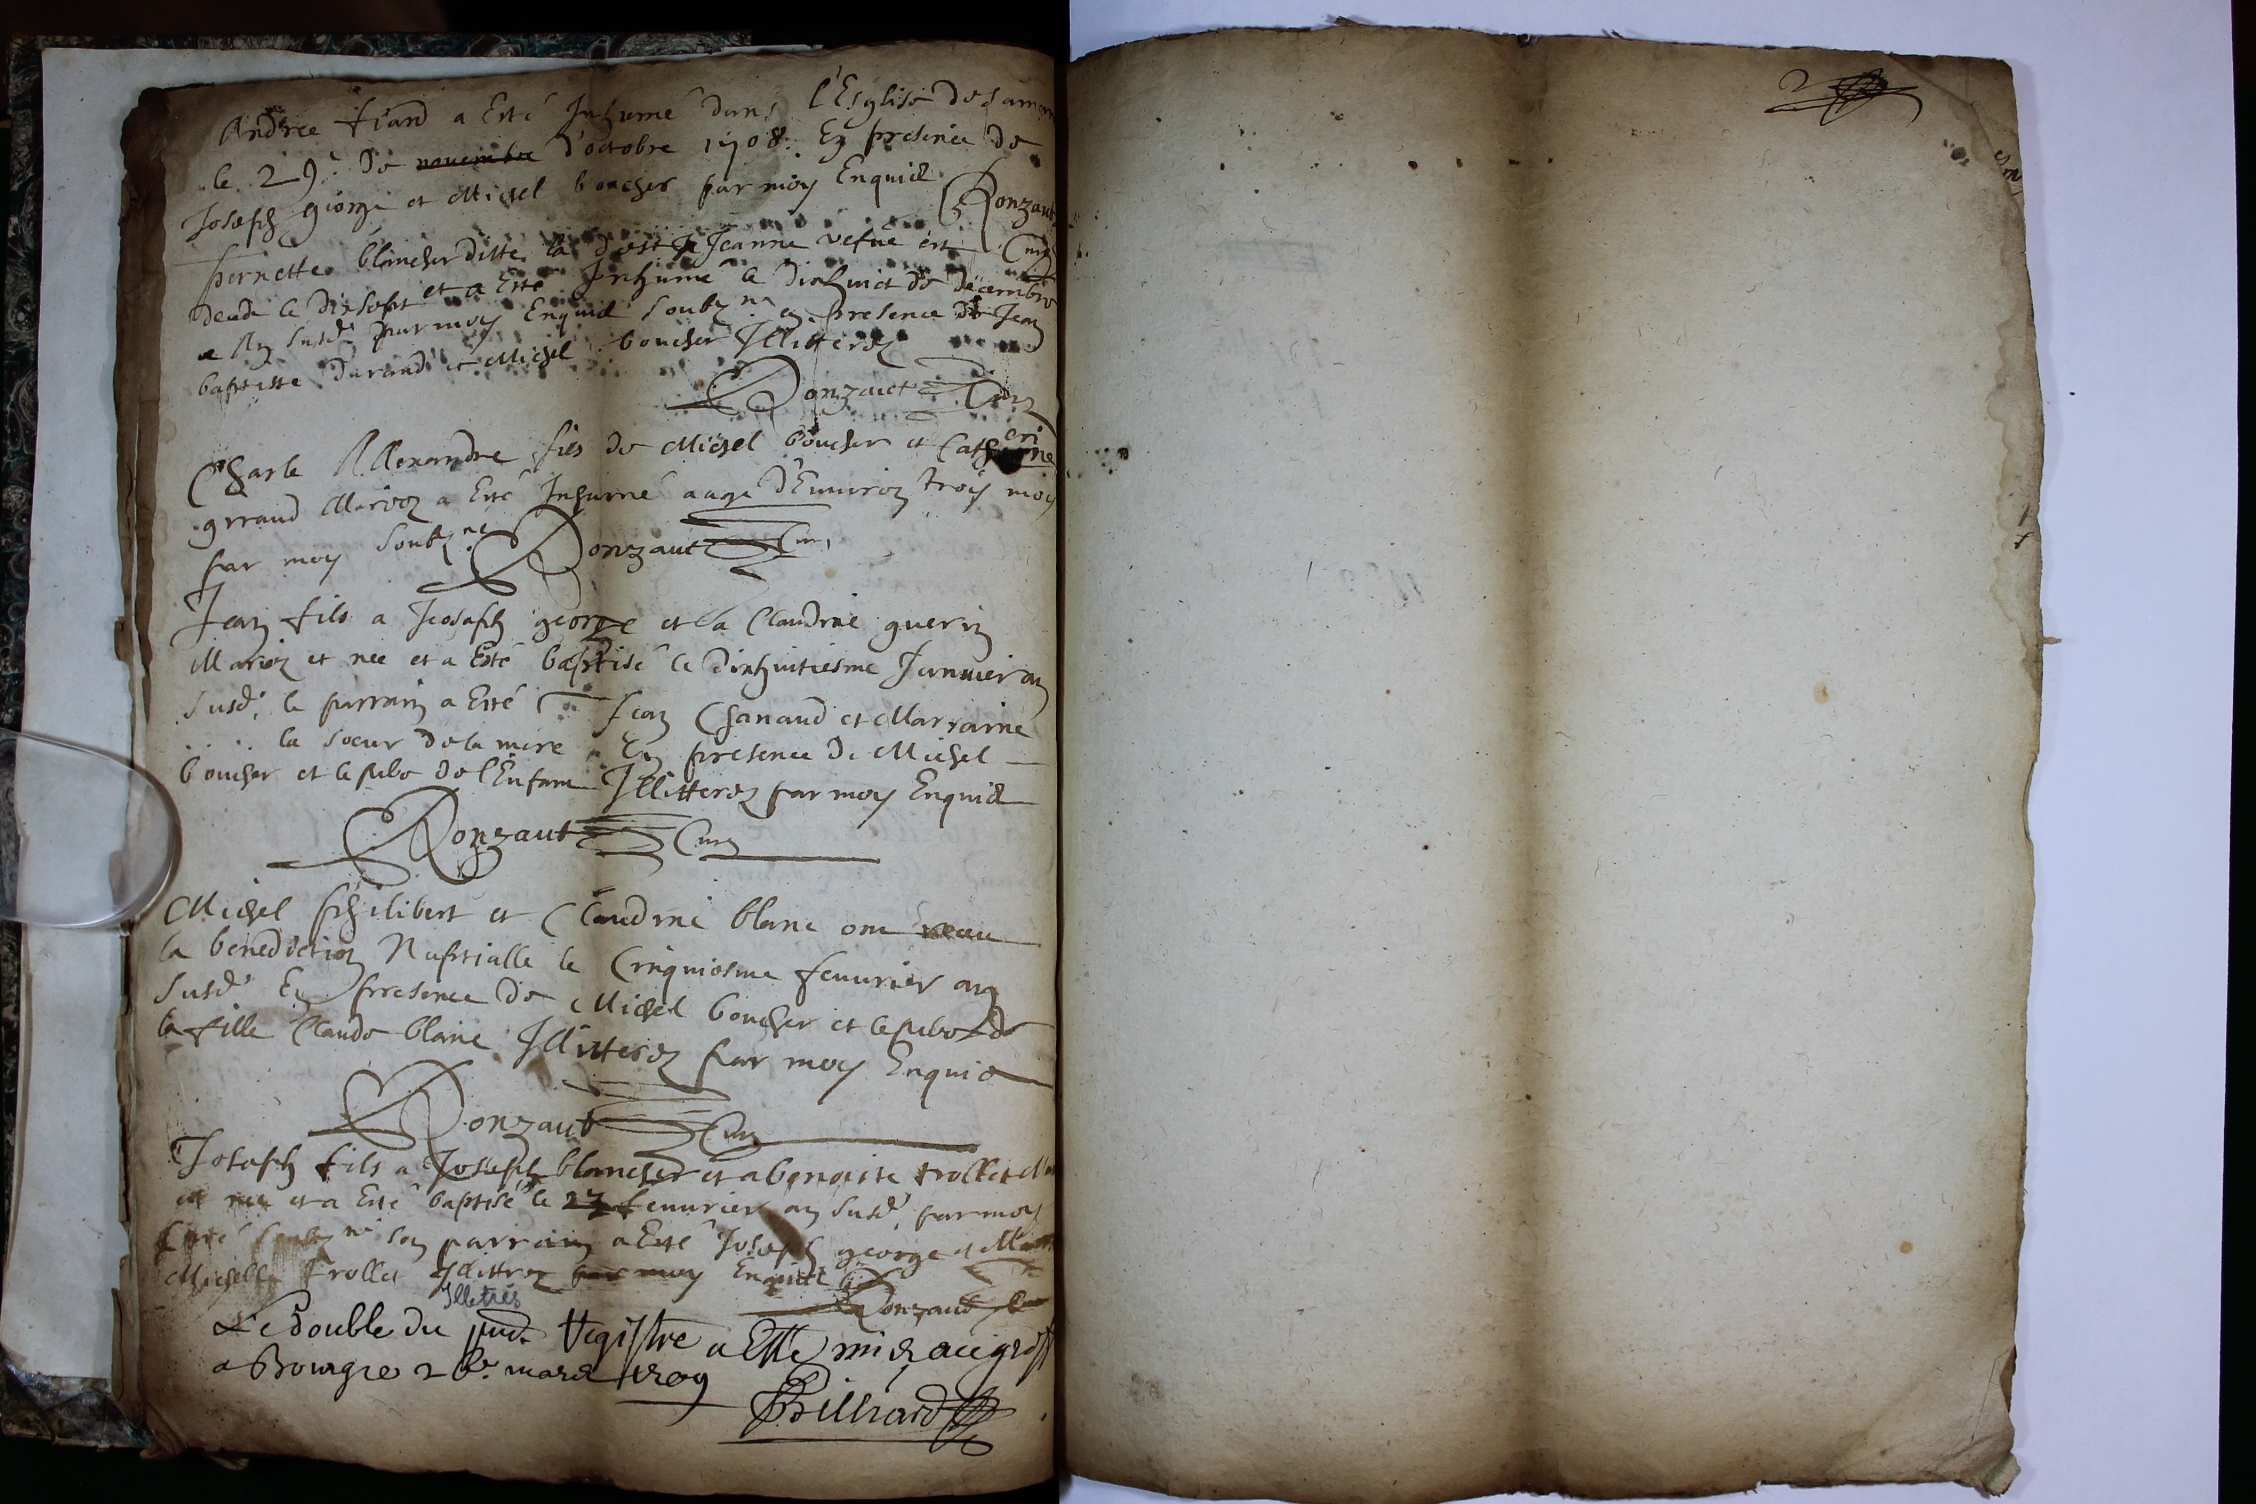 Andree fiard a Esté Inhumé dans l'Esglise de
le 29e de novembre d'octobre 1708. En presence de
Joseph george et Michel boucher par moy Enquid
Ronzaut Curé
pernette blancher ditte la Jeanne vefue est
decede le dixsept et a Esté Inhumé le dixhuict de decembre
an susd. par moy Enquid soubz.né en presence de Jean
baptiste durand et Michel boucher Illitterez
Ronzaut Curé
Charle Allexandre fils de Michel boucher et Catherine
grraud Mariez a Esté Inhumé aage d'Enuiron trois mois
par moy soubz.né Ronzaut Curé
Jean fils a Jeosaph george et la Claudine guerin
Mariez et née et a Esté baptisé le dixhuitiesme Januier an
susd. le parrain a Esté Jean Chanaud et Marraine
la soeur de la mere En presence de Michel
boucher et le pere de l'Enfant Illitterez par moy Enquid
Ronzaut Curé
Michel philibert et Claudine blanc ont receu
la benediction Nuptialle le Cinquiesme feuurier an
susd. En presence de Michel boucher et le pere de
la fille Claude blanc Illitterez par moy Enquid
Ronzaut Curé
Joseph fils a Joseph blancher et a benoiste trollet
et née et a Esté baptisé le 27 feuurier an susd. par moy
Curé soubz.né son parrain a Esté Joseph george et
Michelle trollet Illittrez par moy Enquid
Ronzaut
Illetrés
Le double du pnt. Registre a Esté mis au greff
a Bourg ce 26e mars 1709
Billiard
2